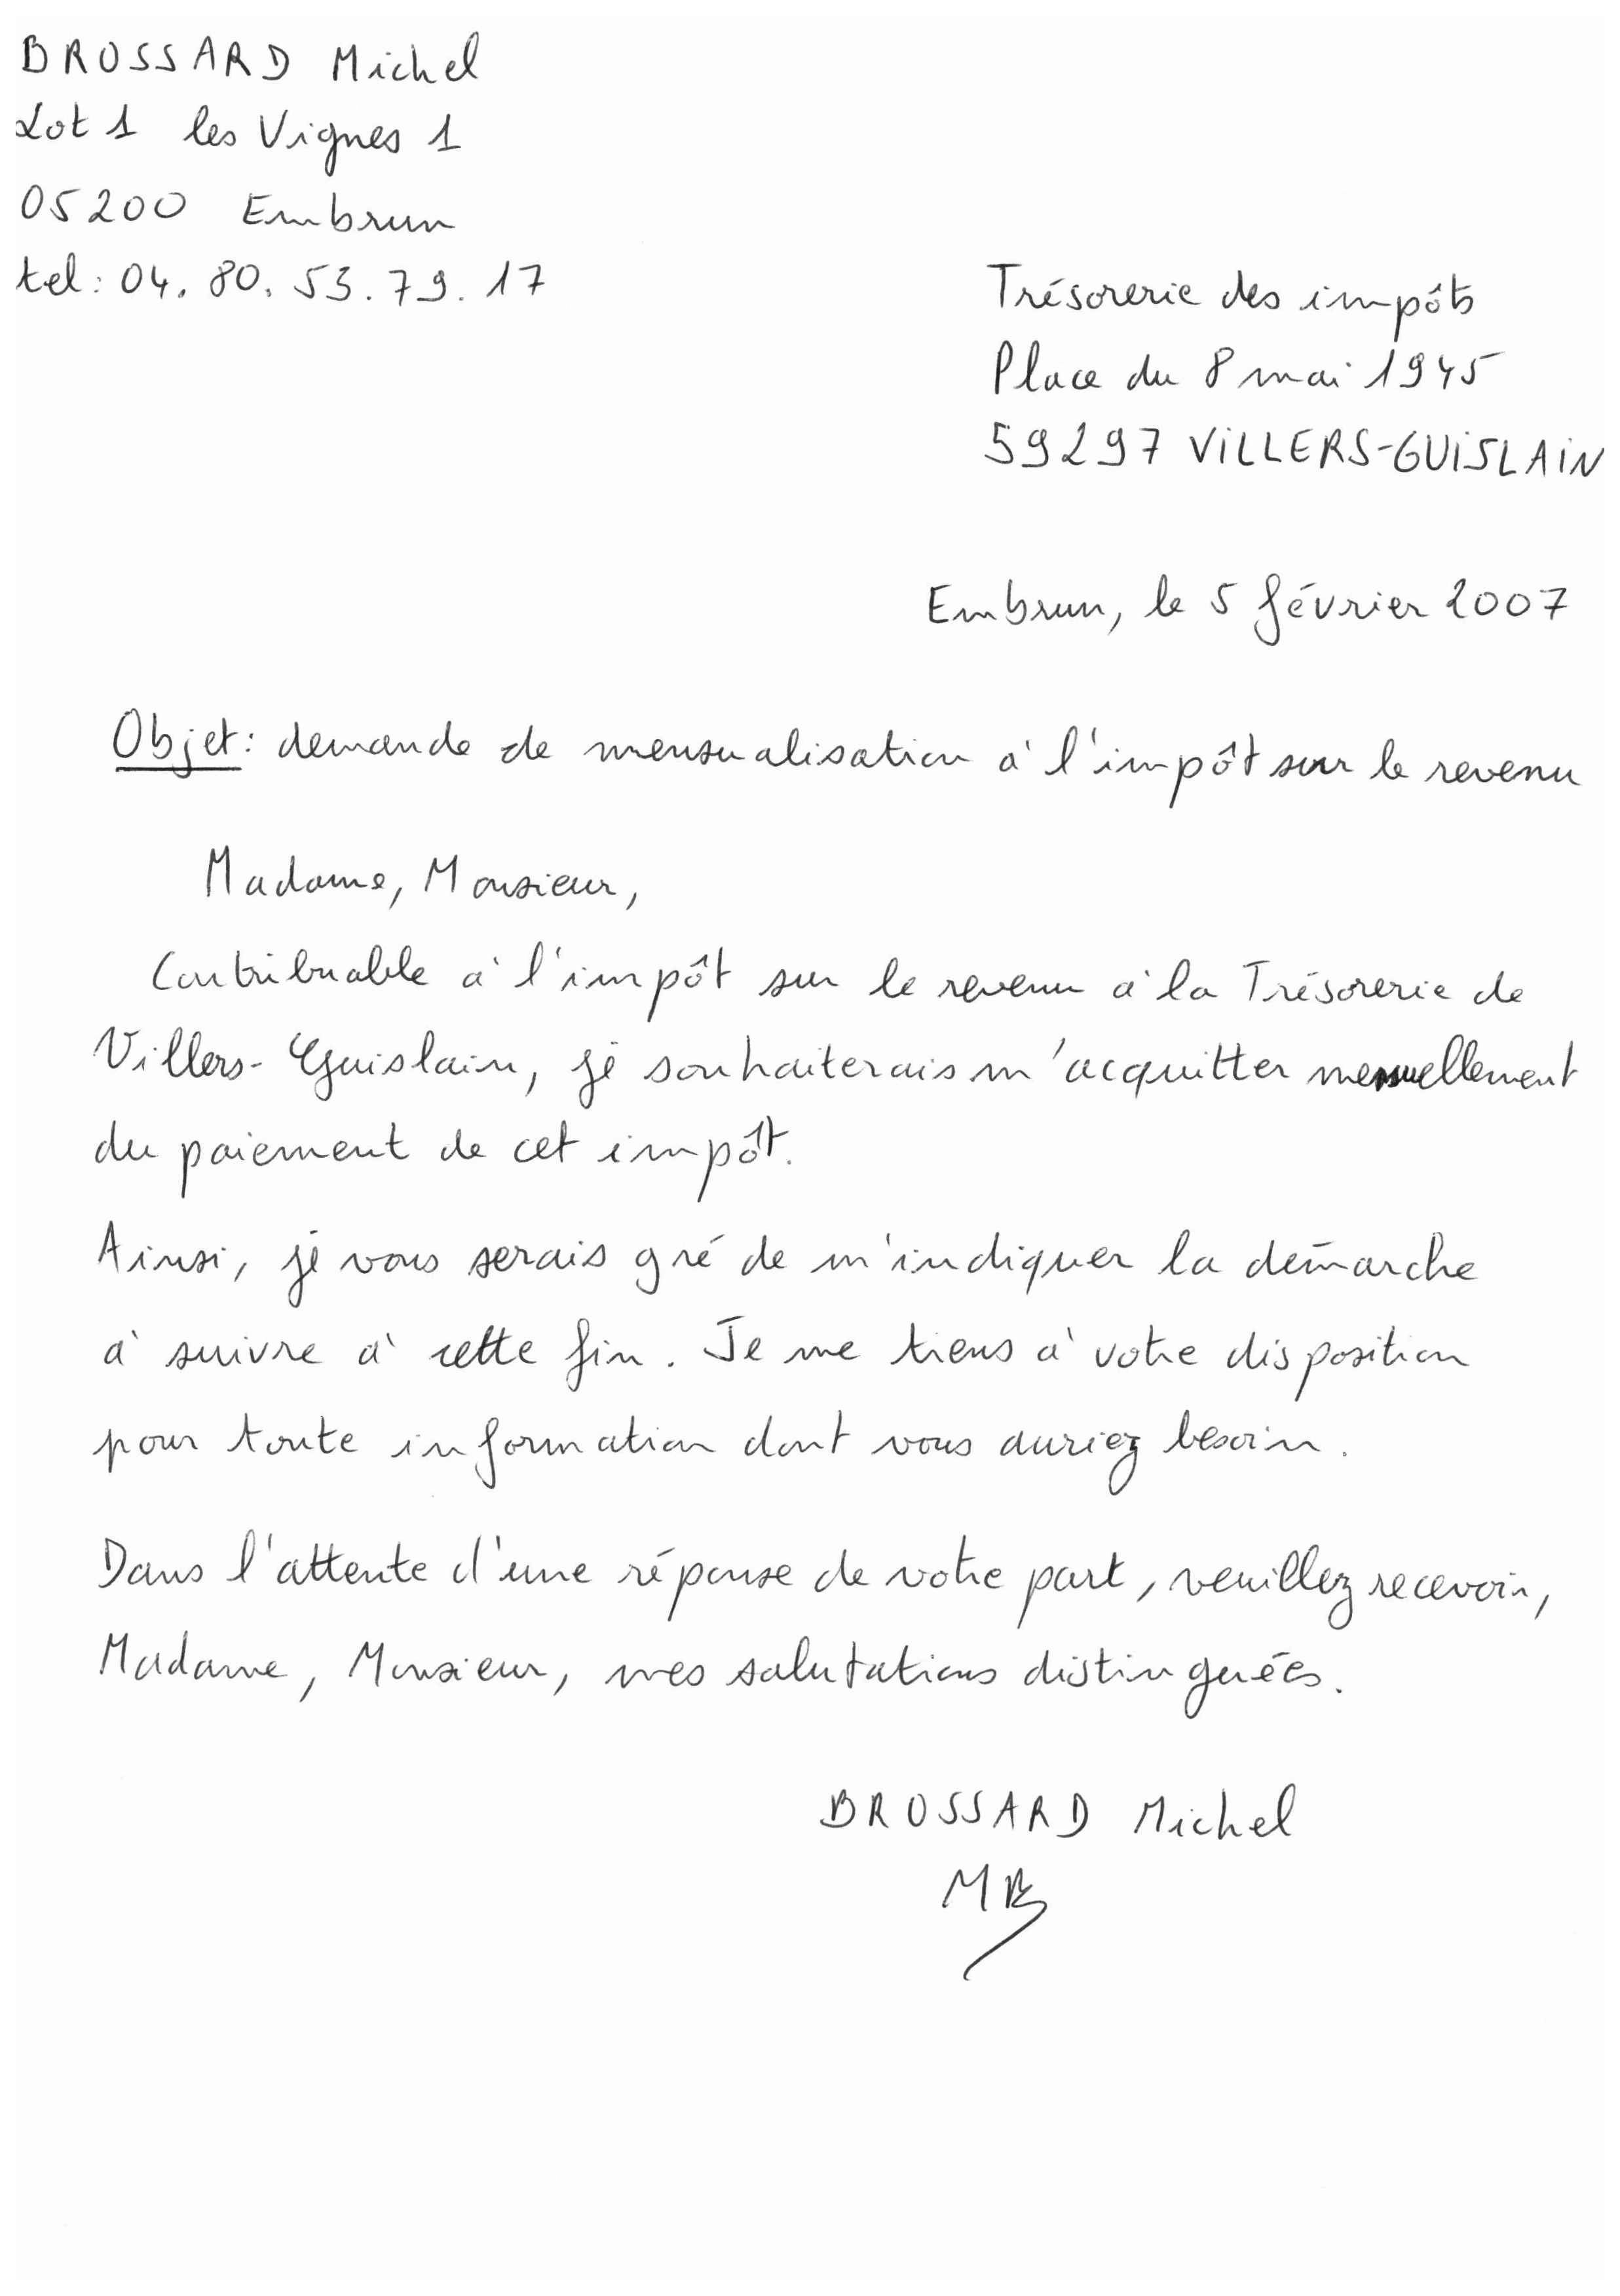 BROSSARD Michel
Lot 1 les Vignes 1
05200 Embrun
tel: 04. 80. 53. 79. 17
Trésorerie des impôts
Place du 8 mai 1945
59297 VILLERS-GUISLAIN
Embrun, le 5 février 2007
Objet: demande de mensualisation à l'impôt sur le revenu
Madame, Monsieur,
Contribuable à l'impôt sur le revenu à la Trésorerie de
Villers-Guislain, je souhaiterais m'acquitter mensuellement
du paiement de cet impôt.
Ainsi, je vous serais gré de m'indiquer la démarche
à suivre à cette fin. Je me tiens à votre disposition
pour toute information dont vous auriez besoin.
Dans l'attente d'une réponse de votre part, veuillez recevoir,
Madame, Monsieur, mes salutations distinguées.
BROSSARD Michel
MB